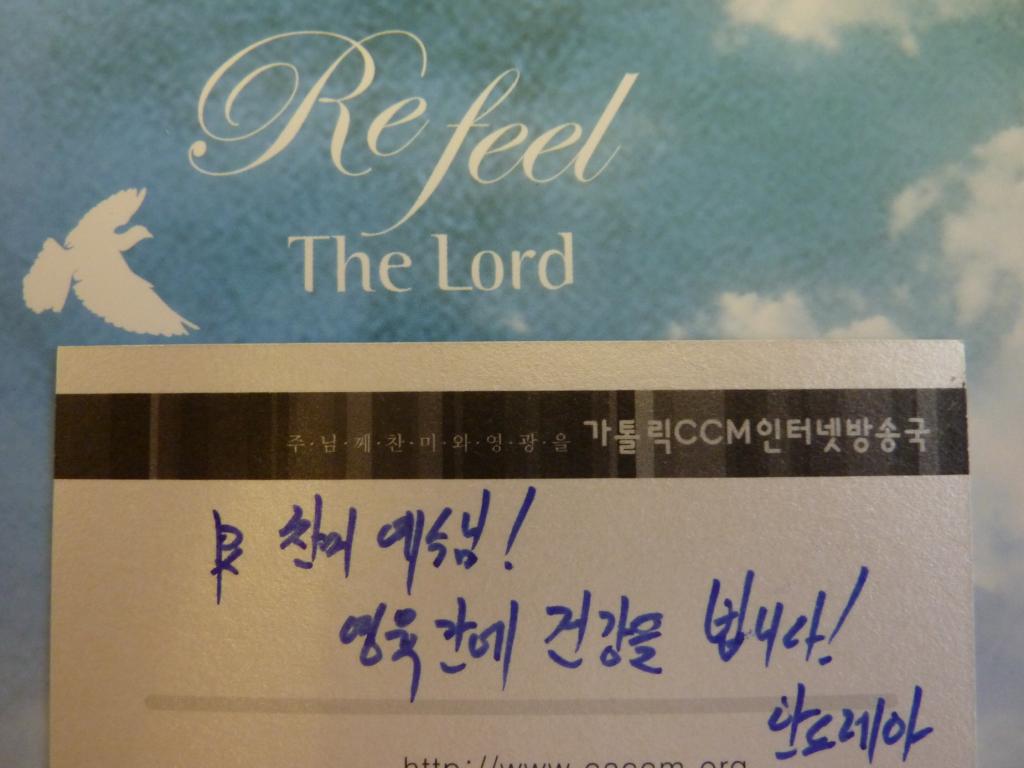 Refeel
The Lord
주·님·께·찬·미·와·영·광·을 가톨릭CCM인터넷방송국
찬미 예수님!
영육간에 건강을 빕니다!
안드레아
http://www.